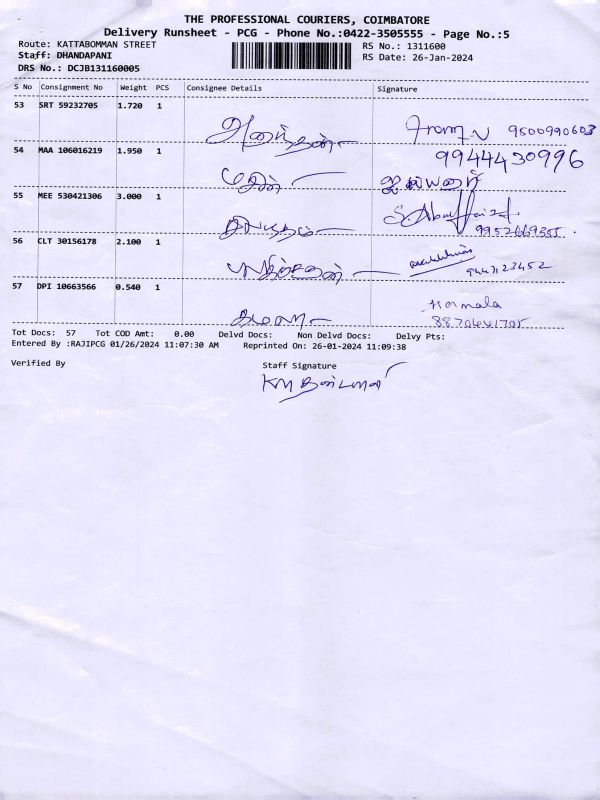 THE PROFESSIONAL COURIERS, COIMBATORE
Delivery Runsheet - PCG - Phone No.:0422-3505555 - Page No.:5
Route: KATTABOMMAN STREET RS No.: 1311600
Staff: DHANDAPANI RS Date: 26-Jan-2024
DRS No.: DCJB131160005
S No Consignment No Weight PCS Consignee Details Signature
53 SRT 59232705 1.720 1
9500990603
54 MAA 106016219 1.950 1
9944430996
55 MEE 530421306 3.000 1
56 CLT 30156178 2.100 1
57 DPI 10663566 0.540 1
Hormala
Tot Docs: 57 Tot COD Amt: 0.00 Delvd Docs: Non Delvd Docs: Delvy Pts:
Entered By :RAJIPCG 01/26/2024 11:07:30 AM Reprinted On: 26-01-2024 11:09:38
Verified By Staff Signature